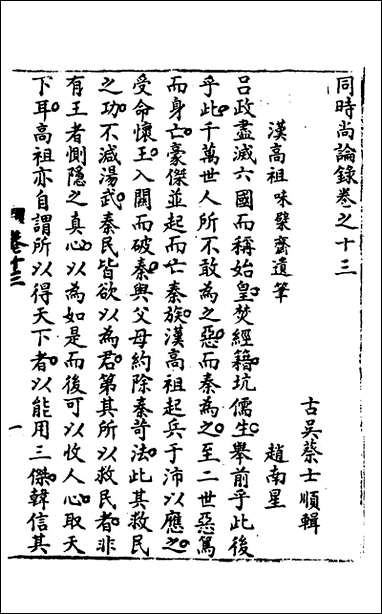 同時尚論錄卷之十三
古吳蔡士順輯
漢高祖味檗齋遺筆
趙南星
呂政盡滅六國而稱始皇焚經籍坑儒生舉前乎此後
乎此千萬世人所不敢為之惡而秦為之至二世惡篤
而身亡豪傑並起而亡秦族漢高祖起兵于沛以應之
受命懷王入關而破秦與父母約除秦苛法此其救民
之功不減湯武秦民皆欲以為君第其所以救民者非
有王者惻隱之真心以為如是而後可以收人心取天
下耳高祖亦自謂所以得天下者以能用三傑韓信其
卷十三
一